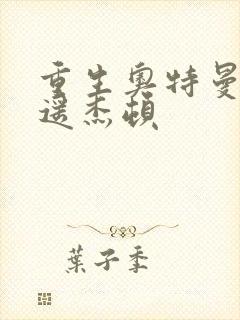 重生奥特曼
遥杰顿
葉子季